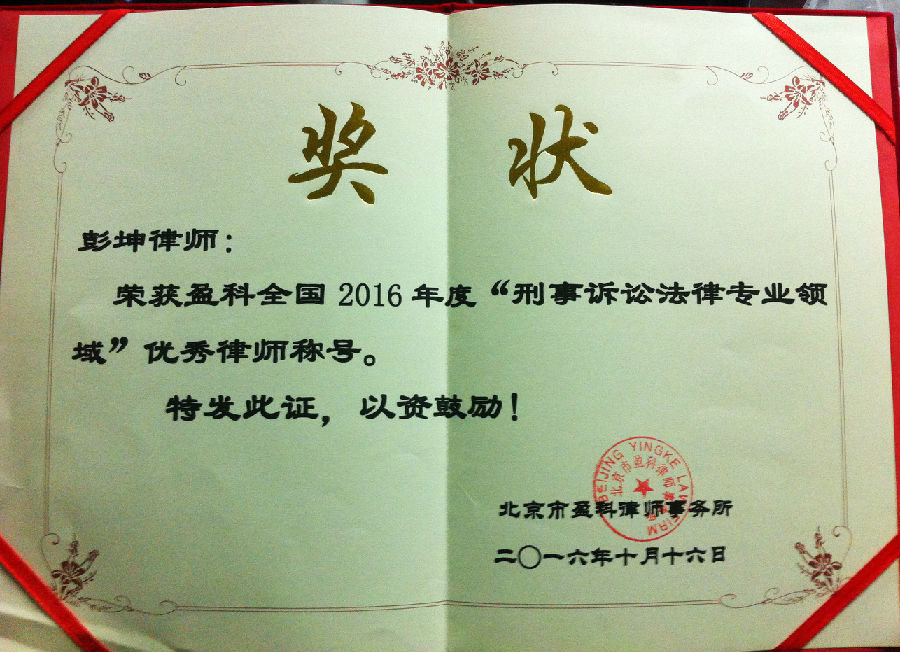 奖 状
彭坤律师：
荣获盈科全国 2016 年度“刑事诉讼法律专业领
域”优秀律师称号。
特发此证，以资鼓励！
BEIJING YINGKE LAW FIRM
北京市盈科律师事务所
北京市盈科律师事务所
二〇一六年十月十六日